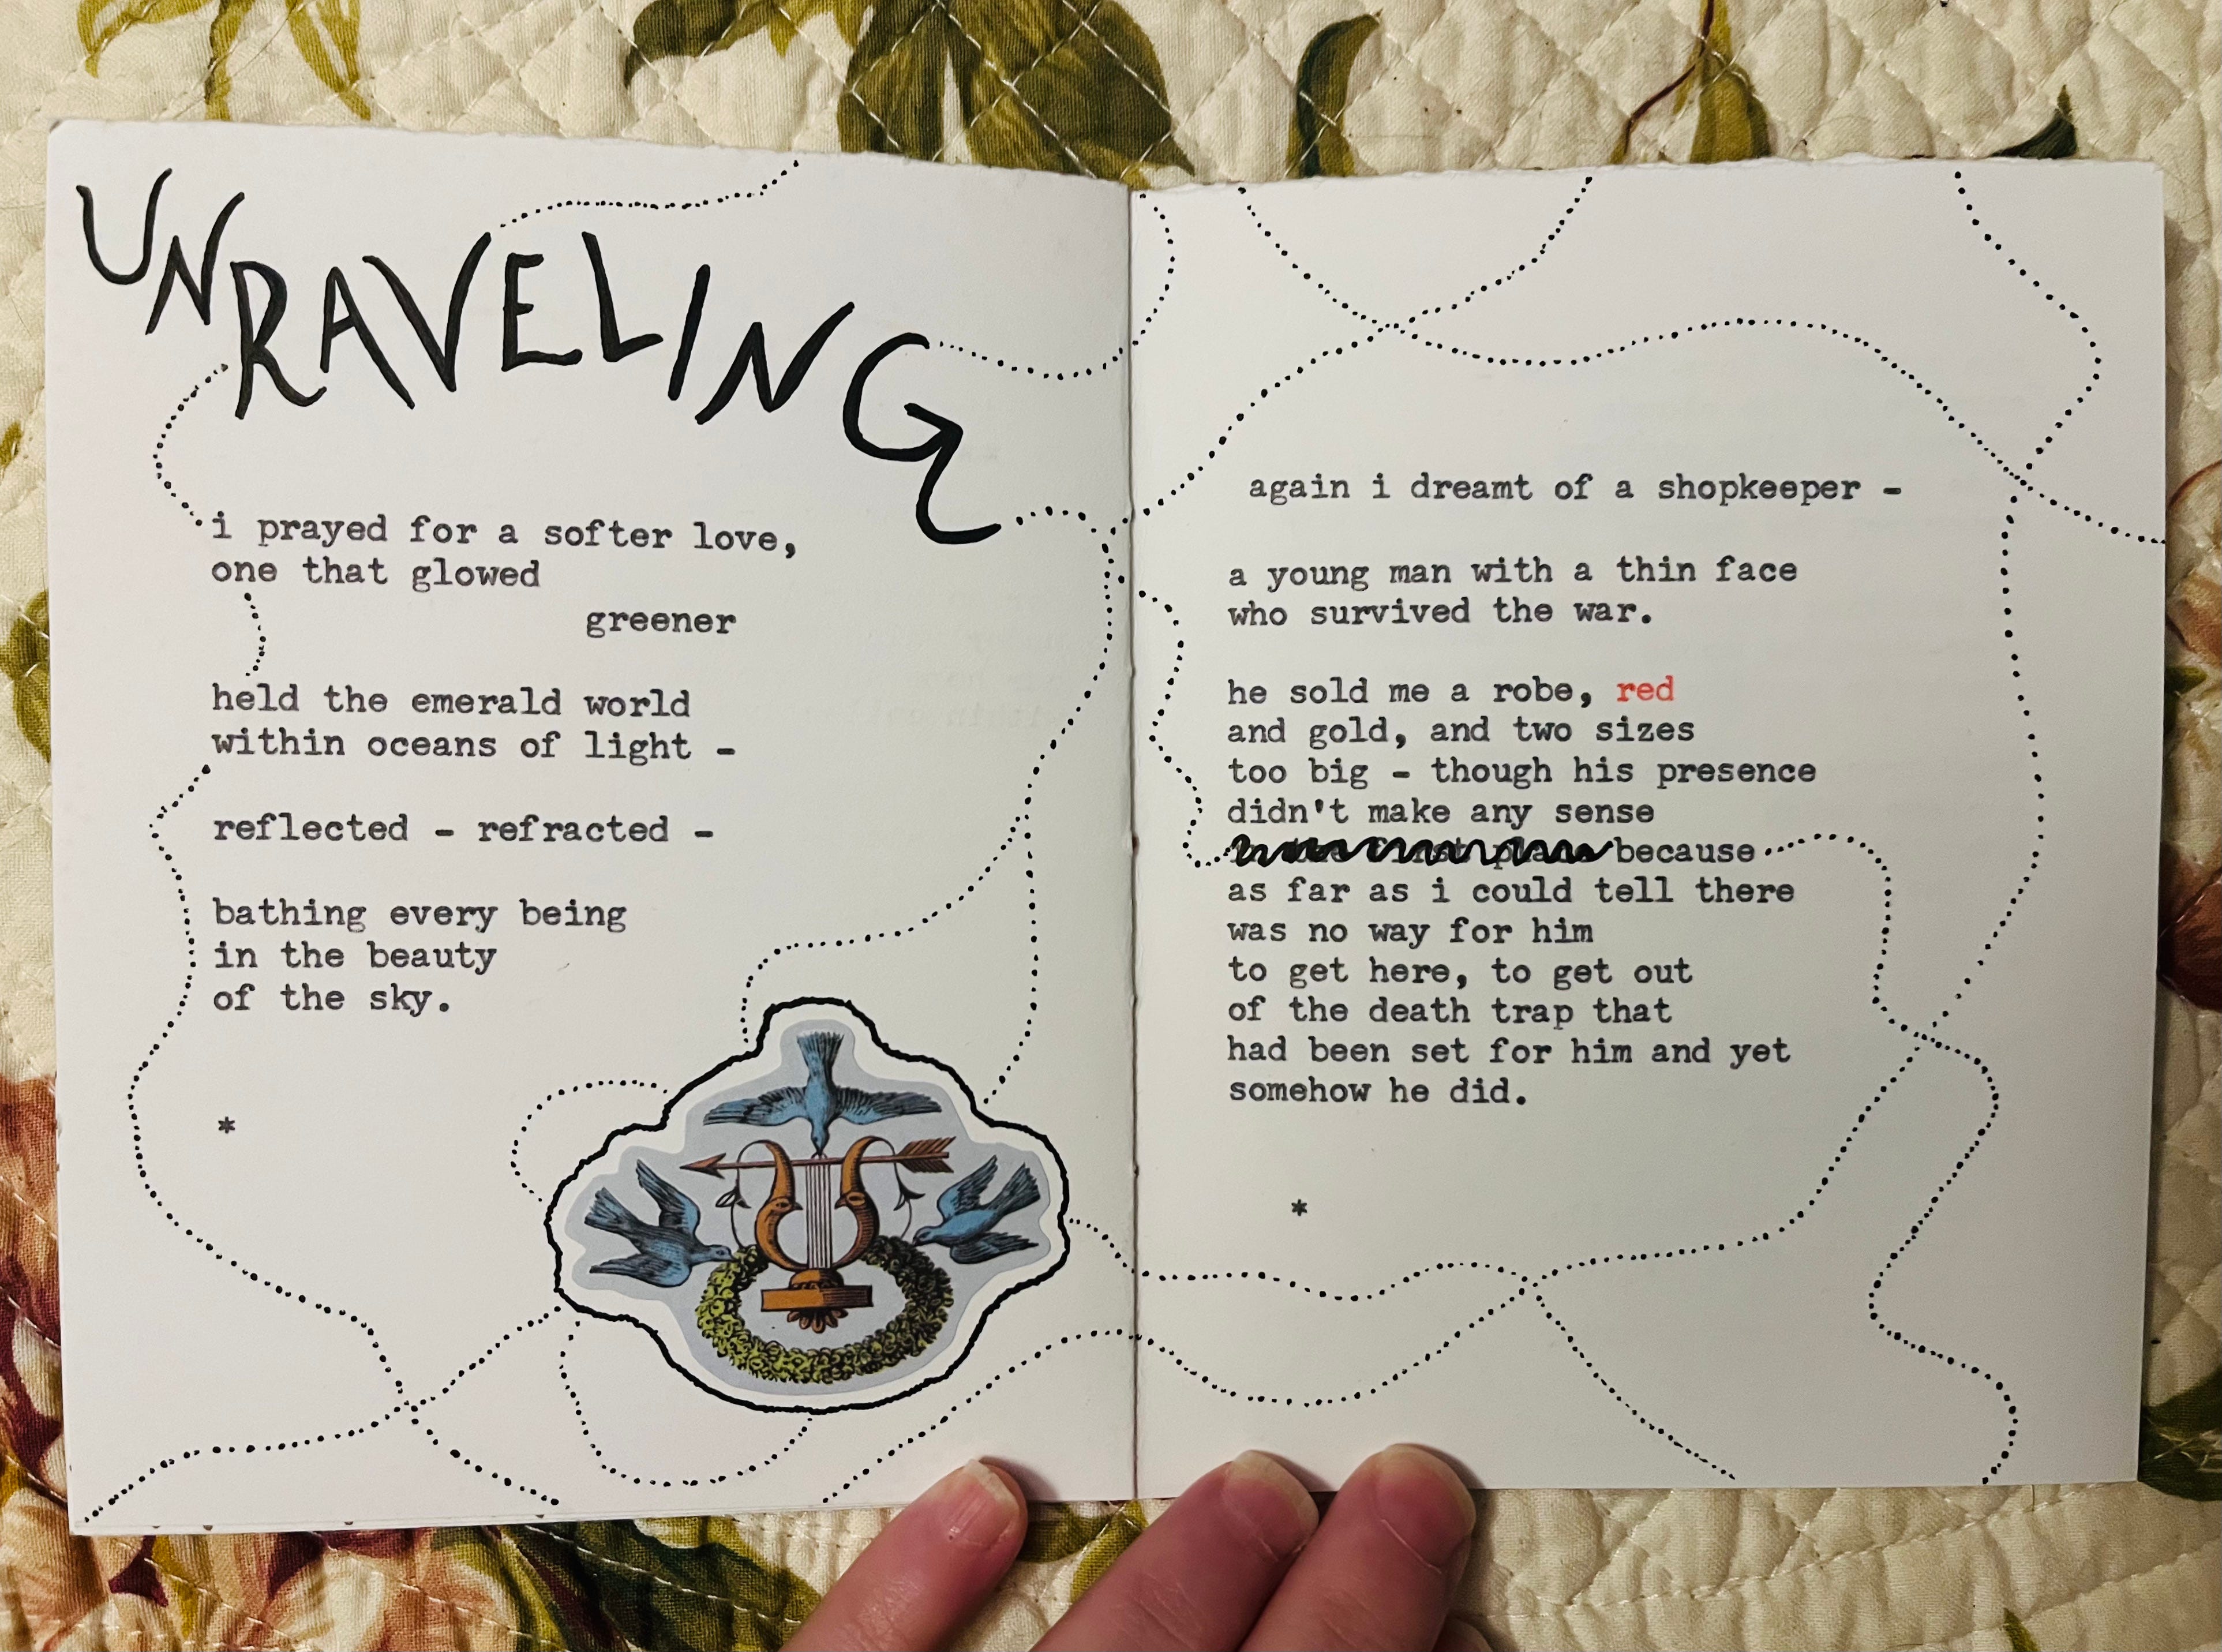 UNRAVELING
i prayed for a softer love,
one that glowed
greener
held the emerald world
within oceans of light -
reflected - refracted -
bathing every being
in the beauty
of the sky.
*
again i dreamt of a shopkeeper -
a young man with a thin face
who survived the war.
he sold me a robe, red
and gold, and two sizes
too big - though his presence
didn't make any sense
first place because
as far as i could tell there
was no way for him
to get here, to get out
of the death trap that
had been set for him and yet
somehow he did.
*